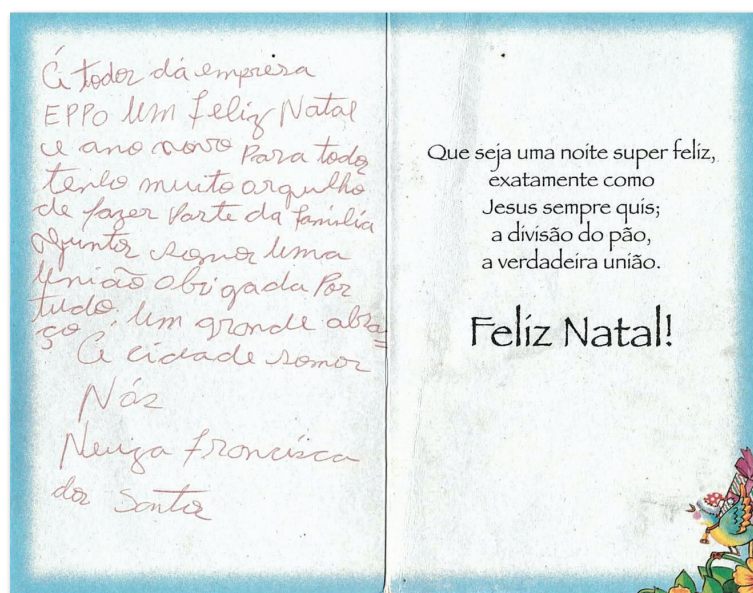 A todos da empresa
EPPO Um feliz Natal
e ano novo Para todos
tenho muito orgulho
de fazer Parte da família
Juntos somos Uma
União obrigada Por
tudo. Um grande abra=
ço
A cidade somos
Nós
Neuza francisca
dos Santos
Que seja uma noite super feliz,
exatamente como
Jesus sempre quis;
a divisão do pão,
a verdadeira união.
Feliz Natal!